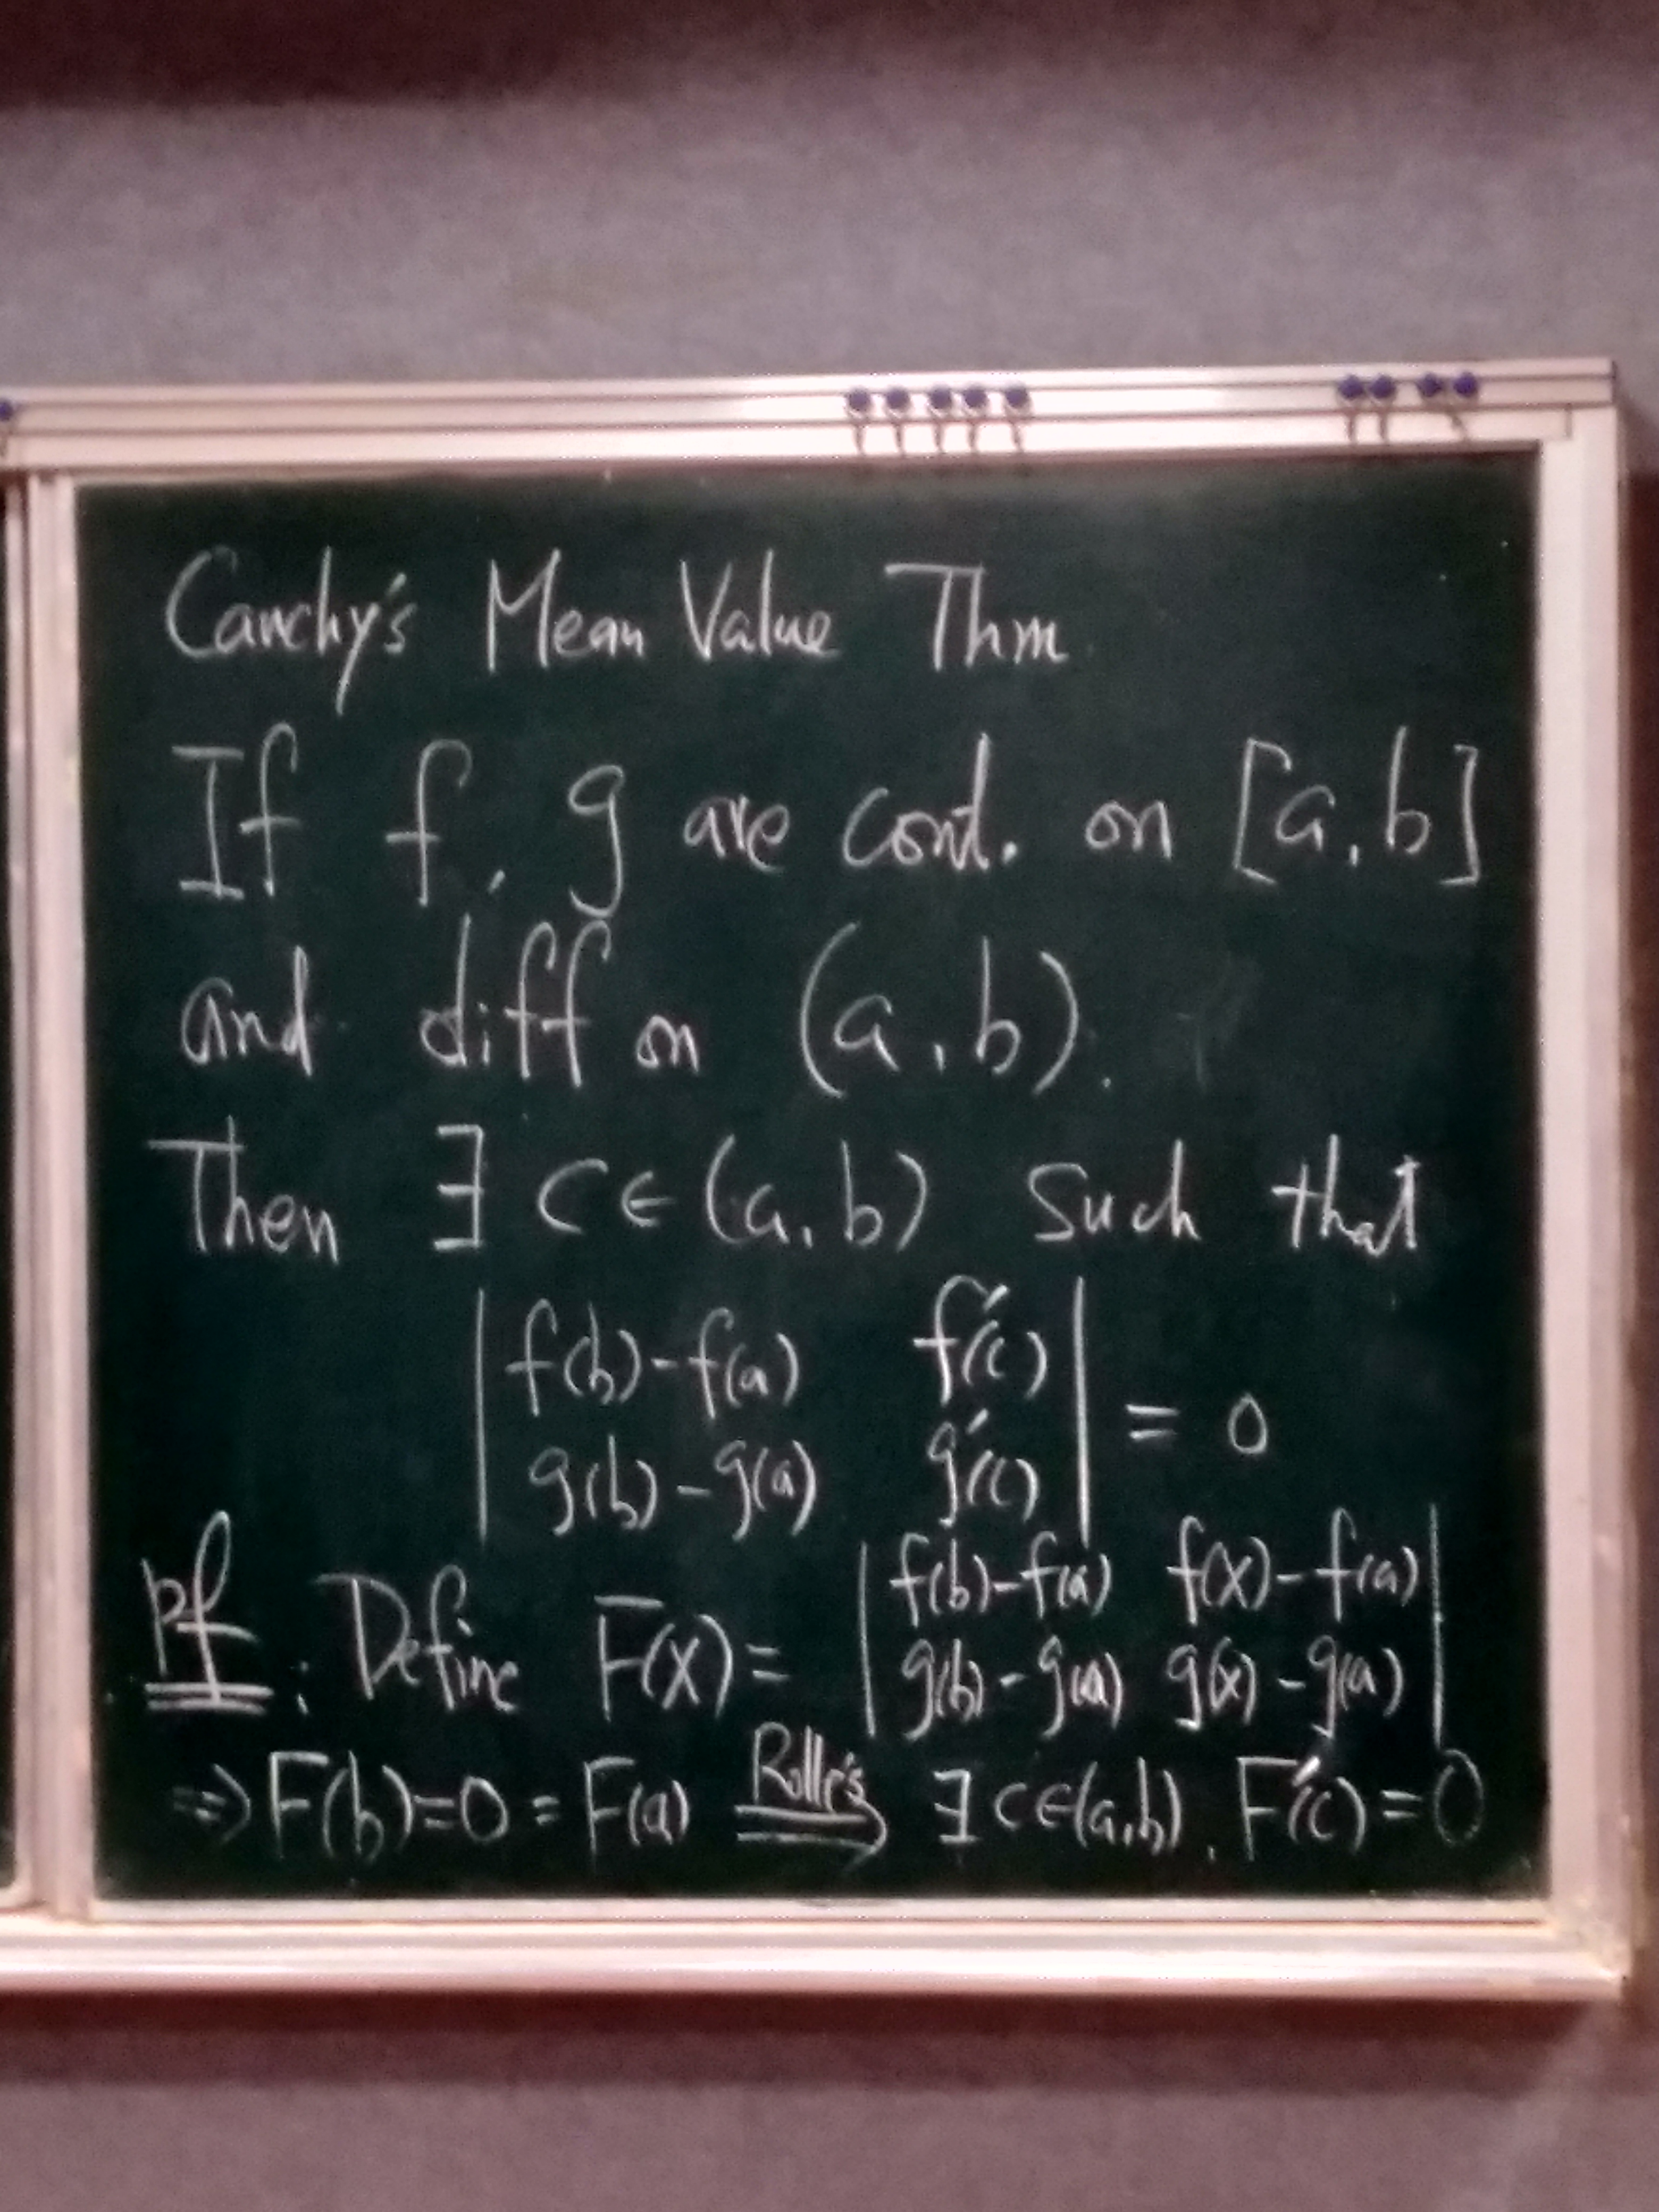 Cauchy's Mean Value Thm
If f, g are cont. on [a, b]
and diff on (a, b).
Then ∃ c ∈ (a, b) such that
| f(b)-f(a) f'(c) |
| g(b)-g(a) g'(c) | = 0
pf: Define F(x) = | f(b)-f(a) f(x)-f(a) |
| g(b)-g(a) g(x)-g(a) |
⇒ F(b)=0=F(a) Rolle's ⇒ ∃ c∈(a,b), F'(c)=0